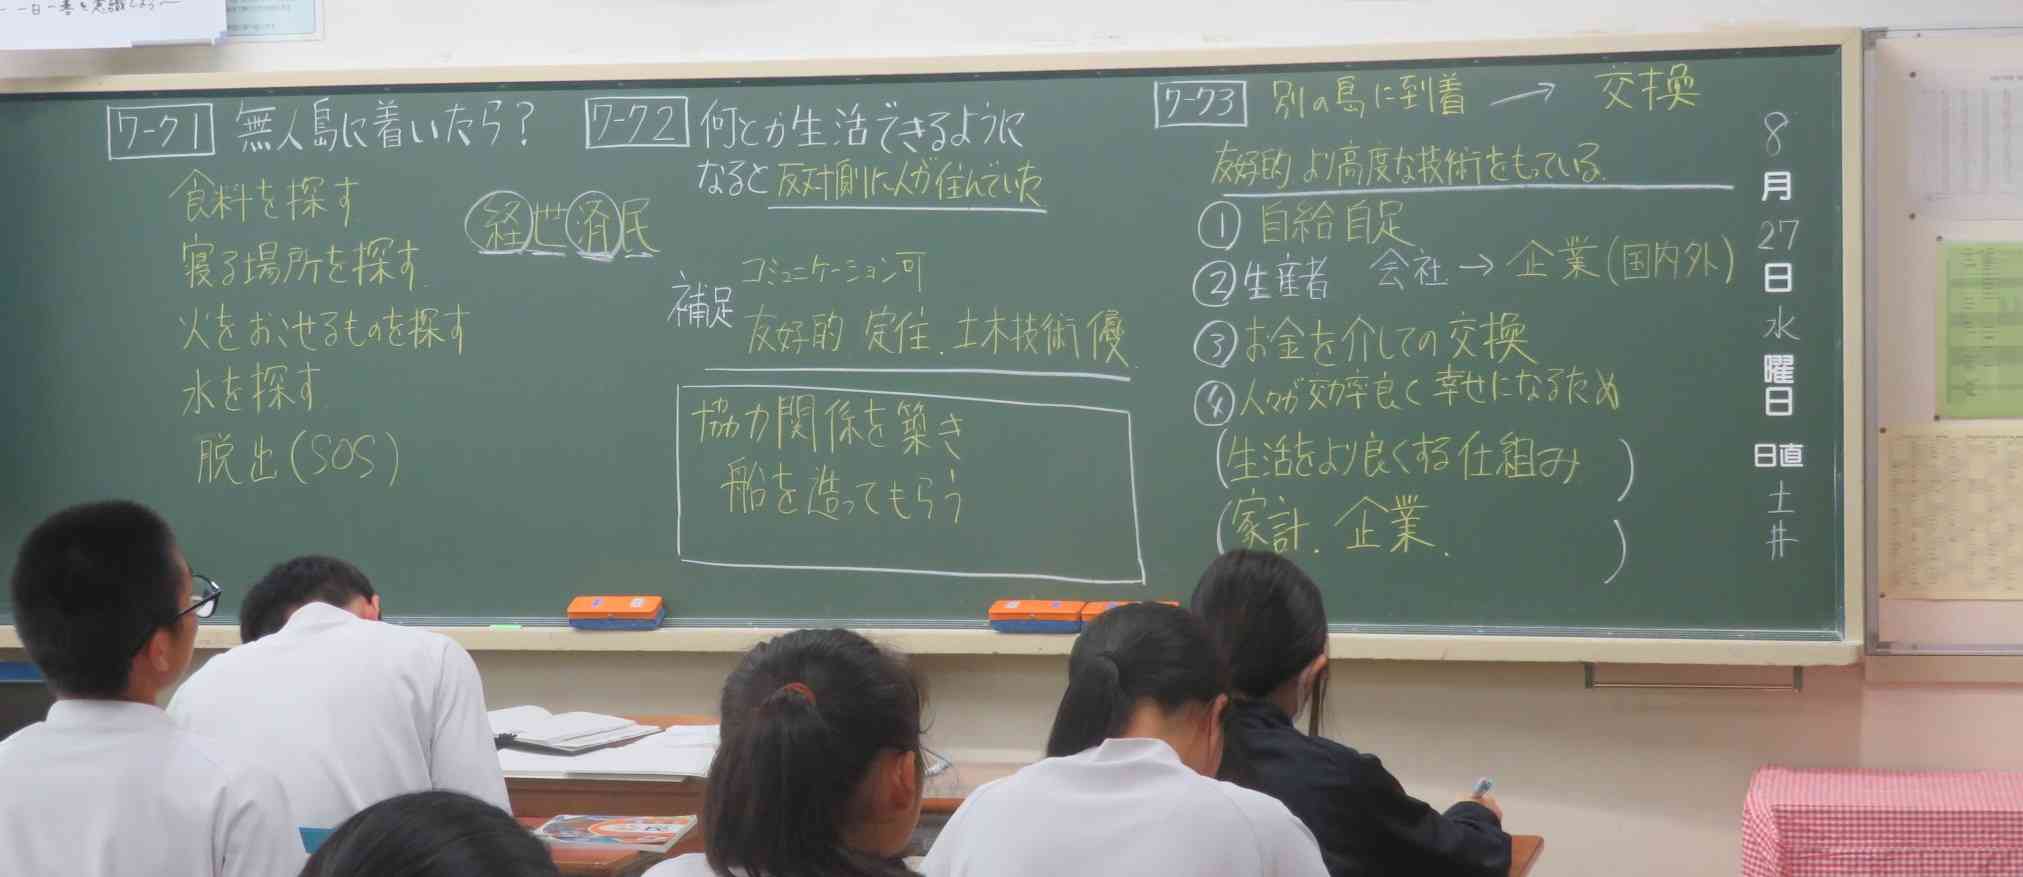 一日一善を意識しよう〜
ワーク1 無人島に着いたら？
食料を探す
寝る場所を探す
火をおこせるものを探す
水を探す
脱出(SOS)
経世済民
ワーク2 何とか生活できるように
なると反対側に人が住んでいた
補足
コミュニケーション可
友好的 定住. 土木技術優
協力関係を築き
船を造ってもらう
ワーク3 別の島に到着 → 交換
友好的 より高度な技術をもっている.
① 自給自足
② 生産者 会社 → 企業(国内外)
③ お金を介しての交換
④ 人々が効率良く幸せになるため
(生活をより良くする仕組み)
(家計. 企業. )
8
月
27
日
水
曜
日
日直
土
井